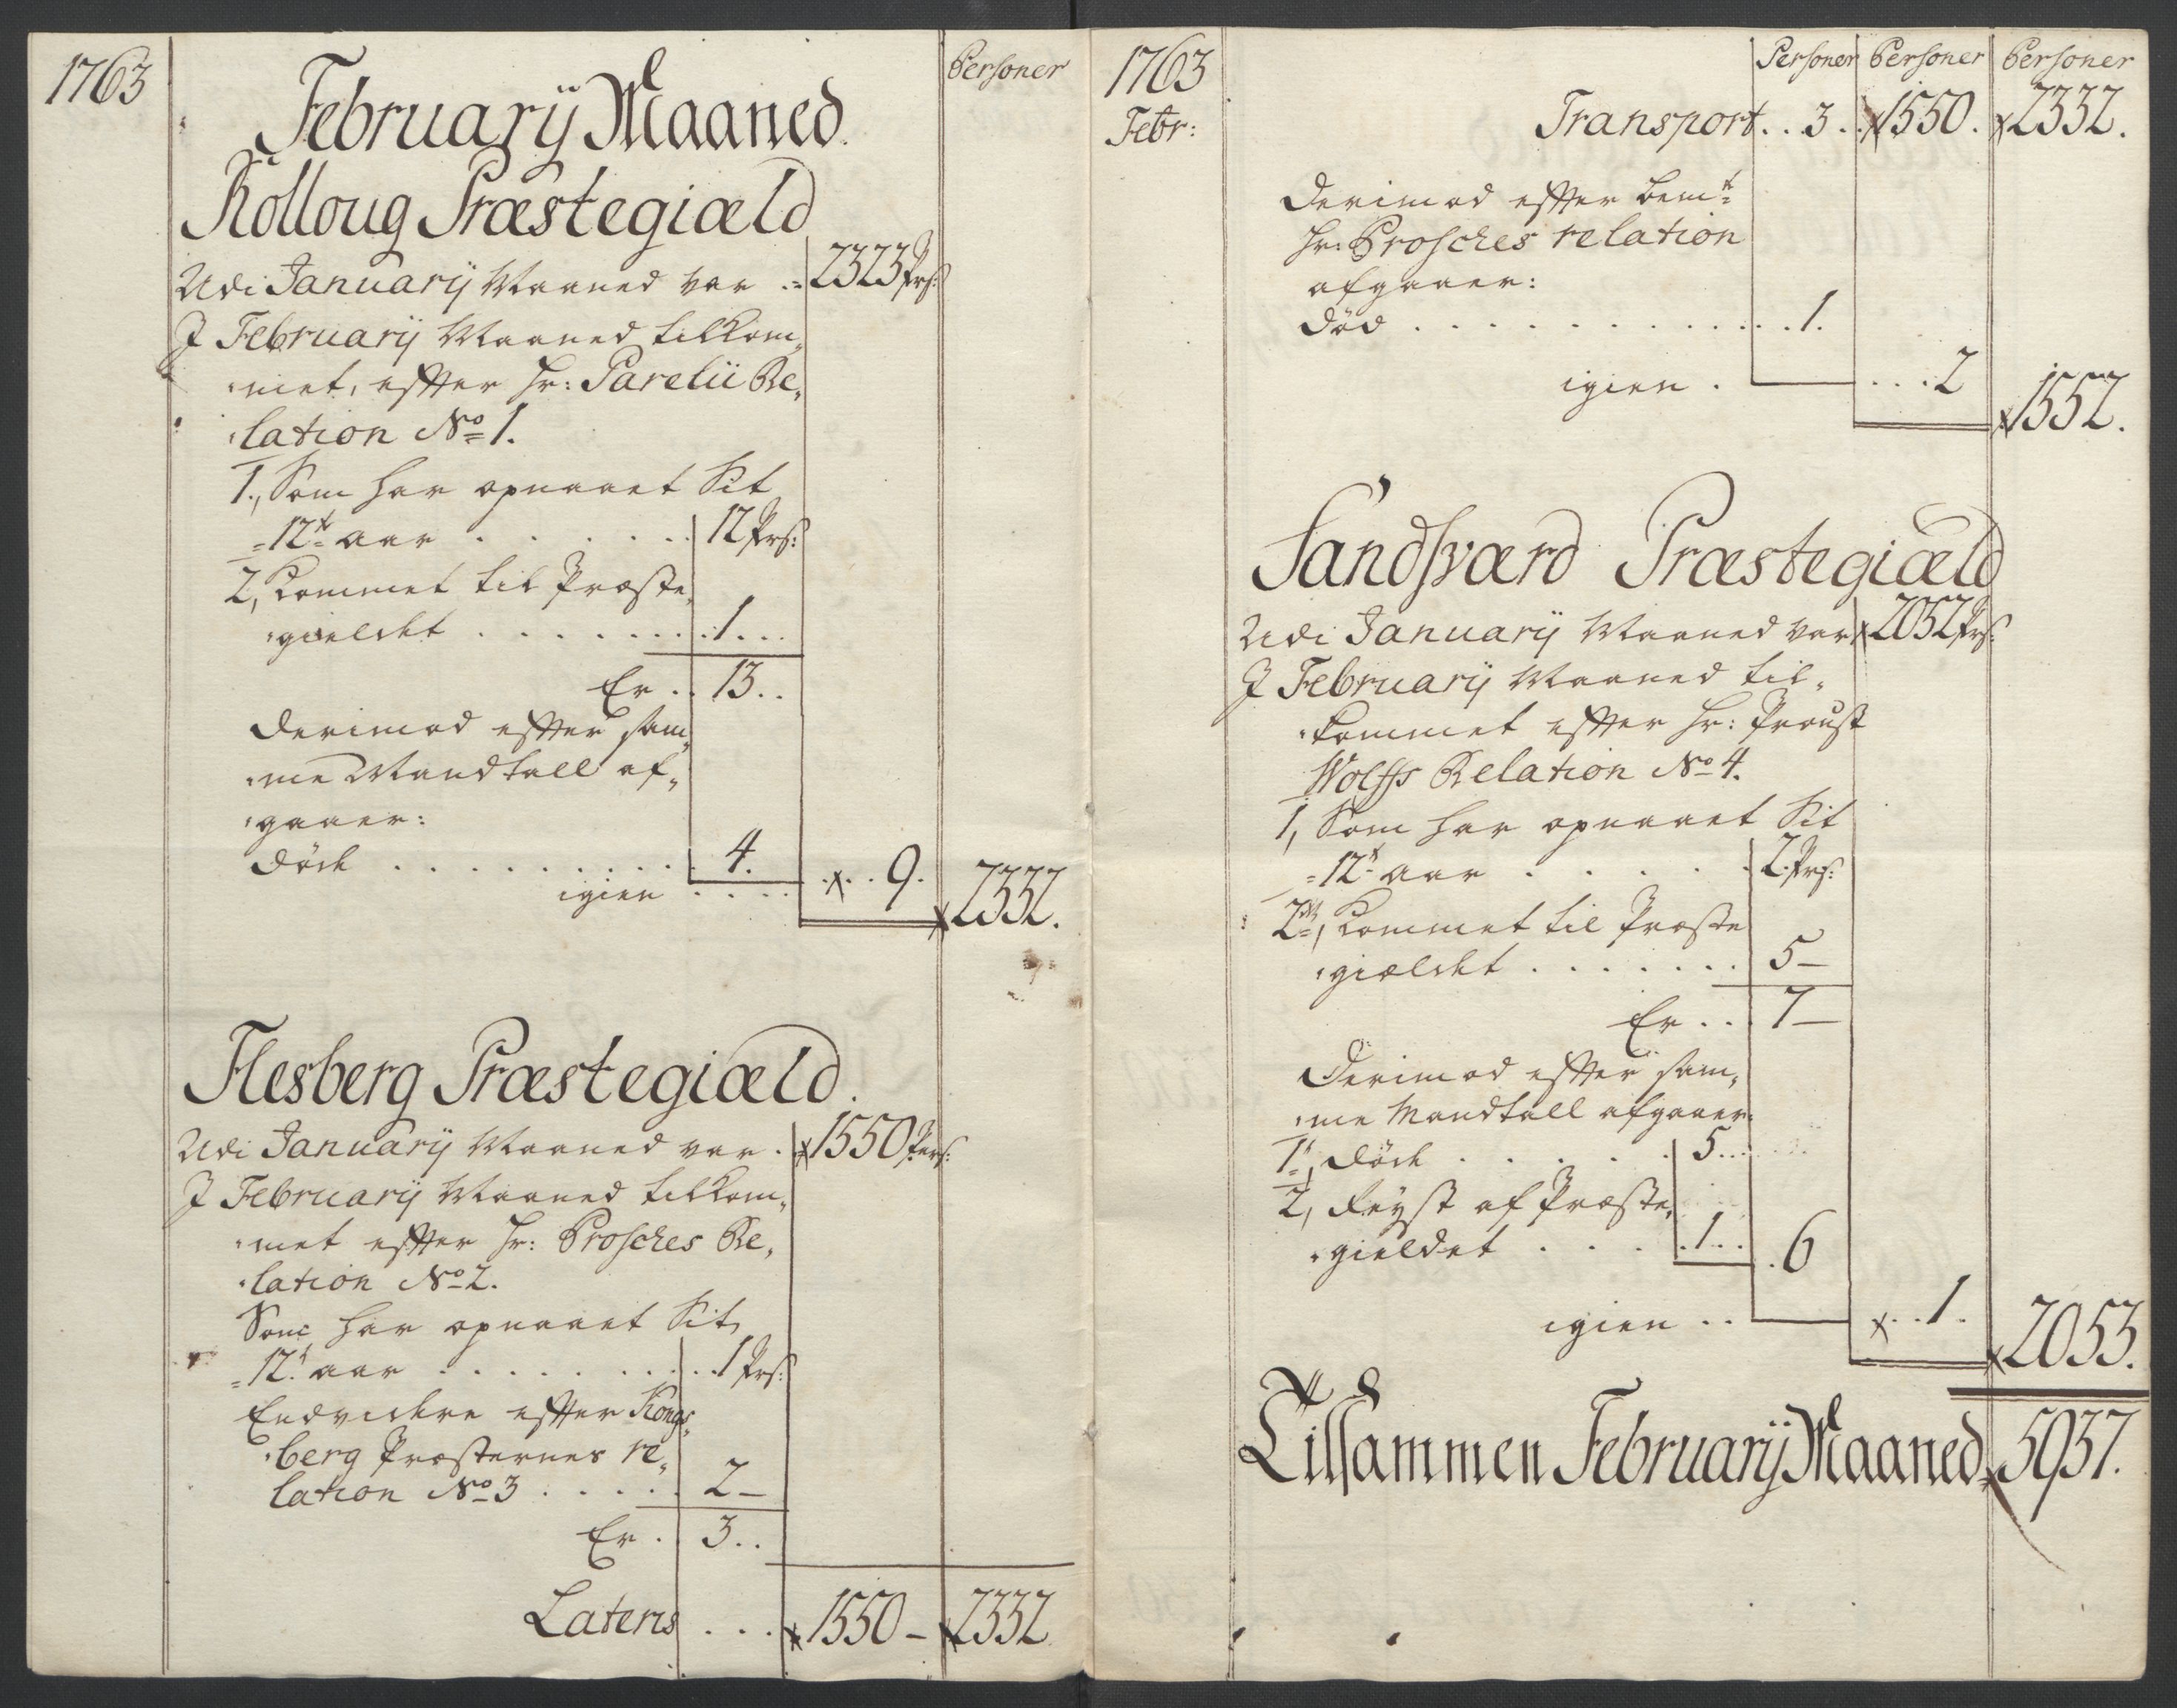 1763
Personer
Februarÿ Maaned.
Kolloug Præstegiæld
Udi Januarÿ Maaned var .. 2323 Prs:
J Februarÿ Maaned tilkom„
„met, efter Hr: Parelii Re„
„lation No 1.
1., Som har opnaaet Sit
12te aar . . . . . 12 Prs:
2, Kommet til Præste„
„gieldet . . . . . . . 1...
Er .. 13..
Derimod efter sam„
„me Mandtall af„
„gaaer:
Døde . . . . . . . . . 4.
igien . . . . x . . 9. x 2332.
Flesberg Præstegiæld.
Udi Januarÿ Maaned var . x 1550 Pers:
J Februarÿ Maaned tilkom„
„met efter Hr: Prosches Re„
„lation No 2.
Som har opnaaet Sit
12te aar . . . . . . . . 1 Prs:
Endvidere efter Kongs„
„berg Præsternes re„
lation No 3 . . . . . 2 –
Er . 3..
Lateris . . . x 1550 – x 2332
1763
Febr:
Personer Personer Personer
Transport . . 3 . x 1550. x 2332.
Derimod efter bemte
Hr: Prosches relation
afgaaer:
Død . . . . . . . . . . . . 1.
igien . . . . 2
x 1552.
Sandsværd Præstegiæld
Udi Januarÿ Maaned var x 2052 Prs:
J Februarÿ Maaned til„
„kommet efter Hr: Proust
Wolffs Relation No 4.
1, Som har opnaaet Sit
12te aar . . . . . 2. Prs:
2det, Kommet til Præste
„giældet . . . . . . . 5 –
Er . . . 7 –
Derimod efter sam„
„me Mandtall afgaaer:
1t, Døde . . . . . 5...
2, Reyst af Præste„
„gieldet . . . . 1 . . . 6
igien . . x . . 1. x 2053.
Tilsammen Februarÿ Maaned x 5937.